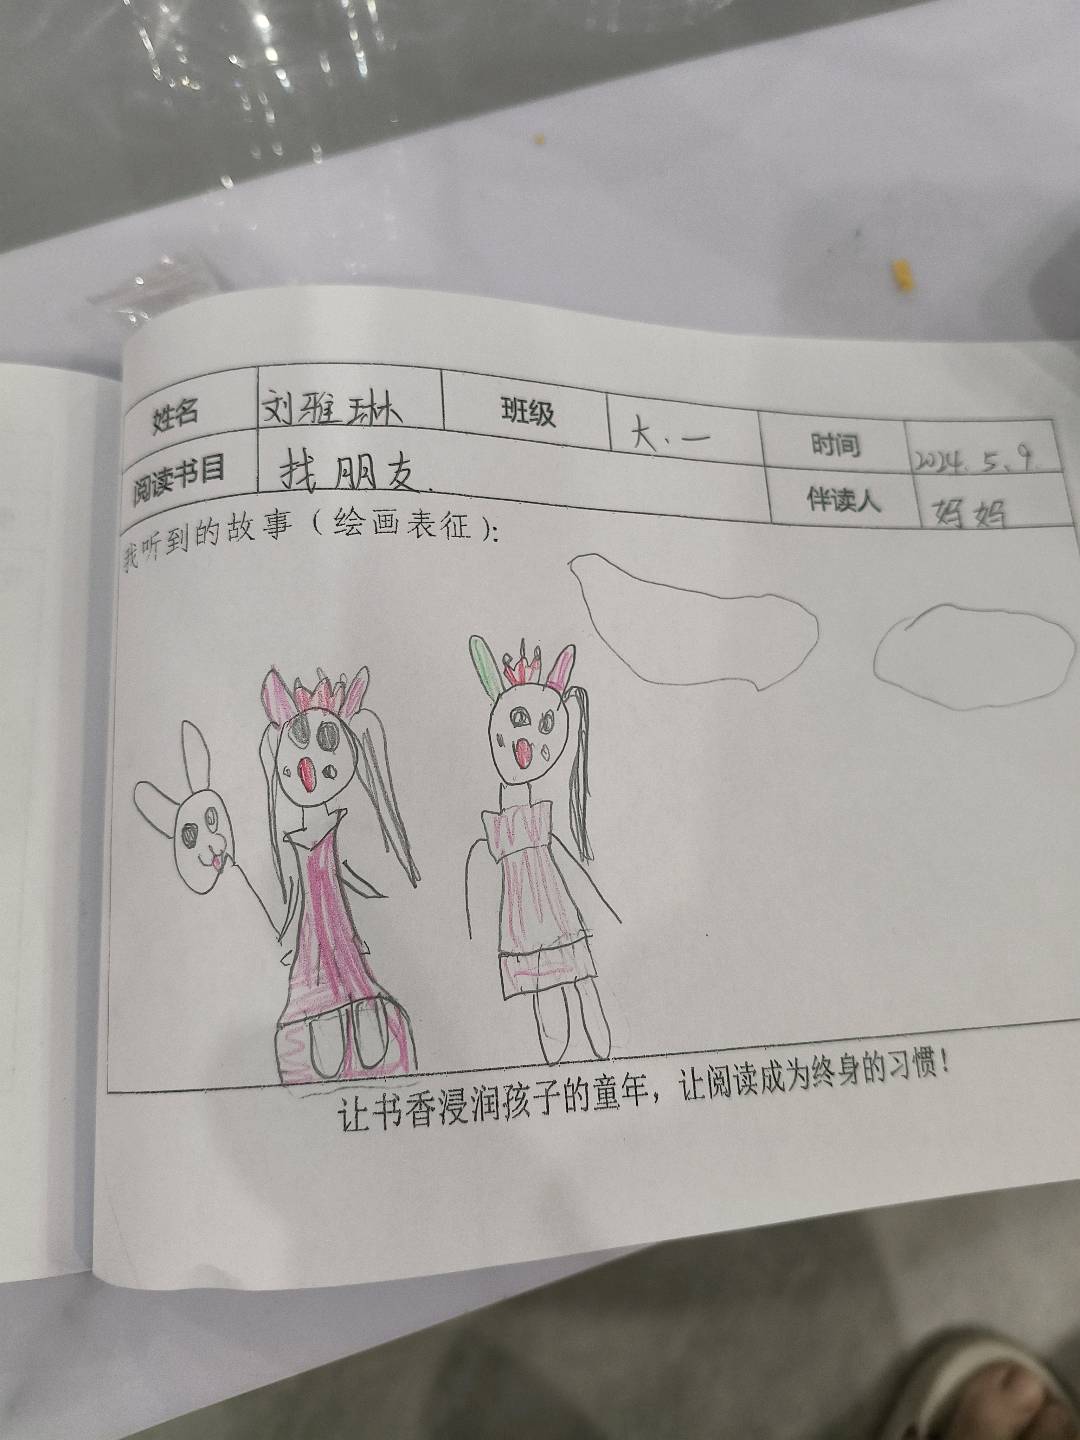 姓名 刘雅琳 班级 大、一 时间 2024.5.9.
阅读书目 找朋友. 伴读人 妈妈
我听到的故事（绘画表征）：
让书香浸润孩子的童年，让阅读成为终身的习惯！